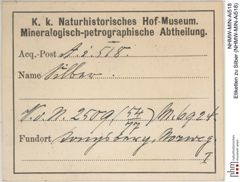 K. k. Naturhistorisches Hof-Museum.
Mineralogisch-petrographische Abtheilung.
Acq.-Post A. i. 518.
Name Silber.
V. o. N. 2509 (54/77) M. 6924.
Fundort Kongsberg, Norweg.
I
NHMW-MIN-Ai518
Etiketten zu Silber (NHMW-MIN-Ai518)